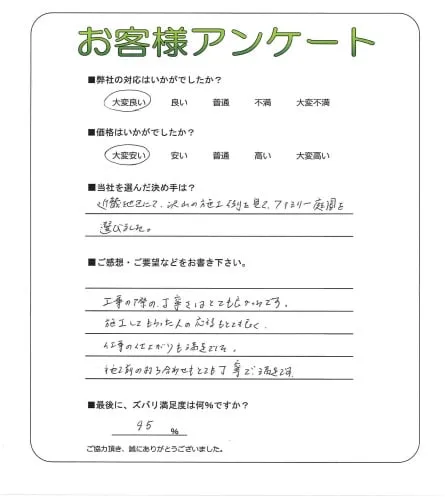 お客様アンケート
■弊社の対応はいかがでしたか?
大変良い 良い 普通 不満 大変不満
■価格はいかがでしたか?
大変安い 安い 普通 高い 大変高い
■当社を選んだ決め手は?
近畿地区にて、沢山の施工例を見て、ファミリー庭園を
選びました。
■ご感想・ご要望などをお書き下さい。
工事の際の丁寧さはとても良かったです。
施工してもらった人の応待もとても良く、
仕事の仕上がりも満足でした。
の打ち合わせもとても丁寧で満足です
■最後に、ズバリ満足度は何%ですか?
95 %
ご協力頂き、誠にありがとうございました。